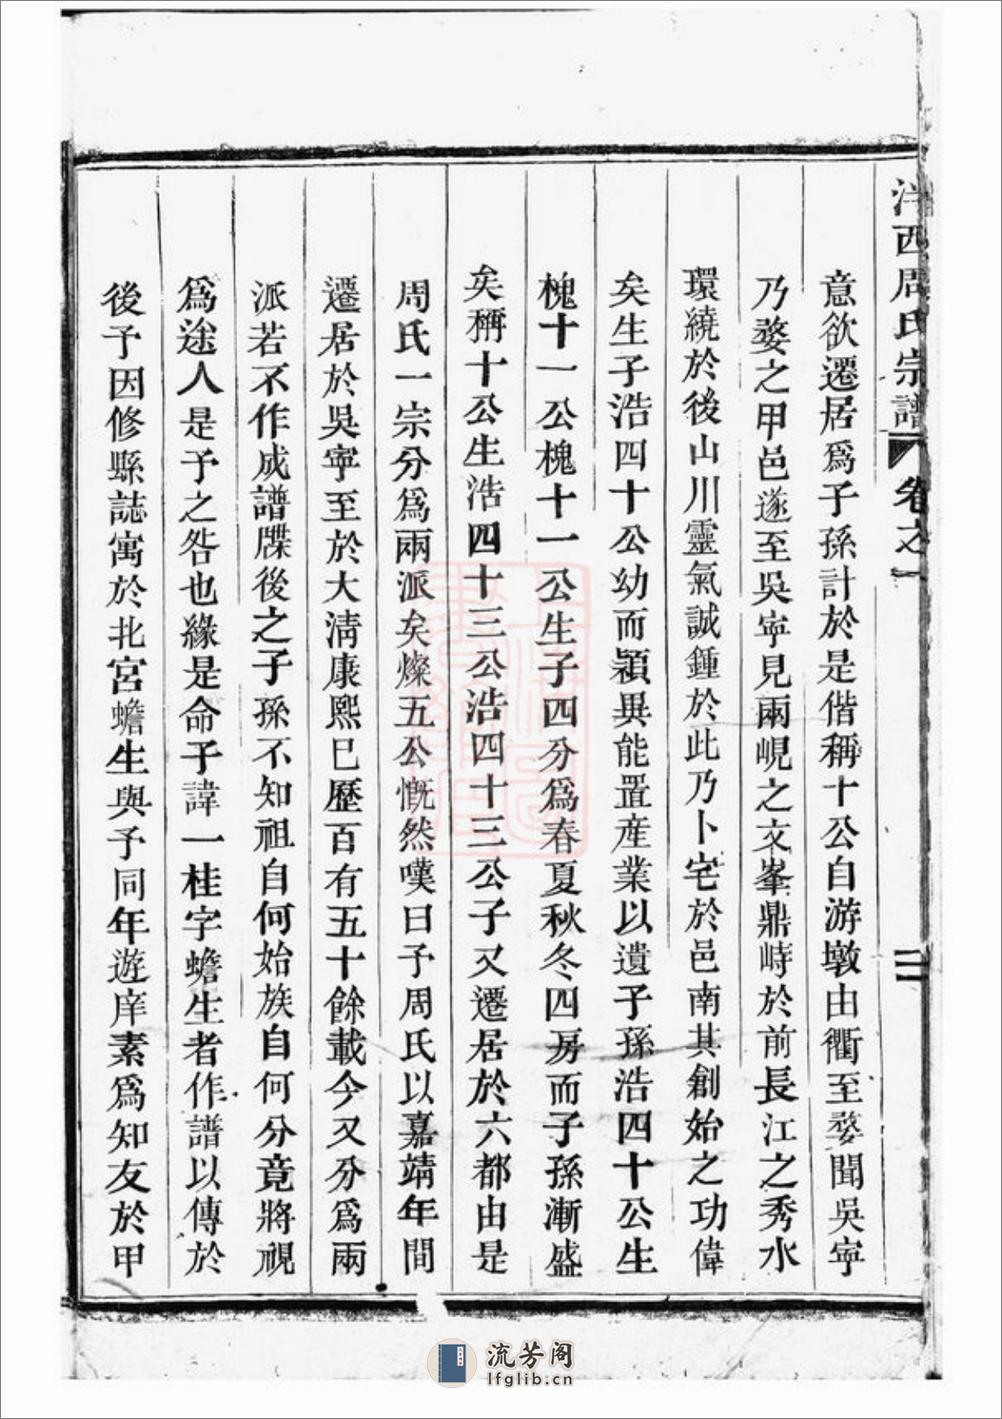 洋西周氏宗譜　卷之一　二
意欲遷居爲子孫計於是偕稱十公自游墩由衢至婺聞吳寧
乃婺之甲邑遂至吳寧見兩峴之文峯鼎峙於前長江之秀水
環繞於後山川靈氣誠鍾於此乃卜宅於邑南其創始之功偉
矣生子浩四十公幼而穎異能置産業以遺子孫浩四十公生
槐十一公槐十一公生子四分爲春夏秋冬四房而子孫漸盛
矣稱十公生浩四十三公浩四十三公子又遷居於六都由是
周氏一宗分爲兩派矣燦五公慨然嘆曰予周氏以嘉靖年間
遷居於吳寧至於大淸康熙巳歷百有五十餘載今又分爲兩
派若不作成譜牒後之子孫不知祖自何始族自何分竟將視
爲途人是予之咎也緣是命予諱一桂字蟾生者作譜以傳於
後予因修縣誌寓於北宮蟾生與予同年遊庠素爲知友於甲
上海圖書館藏
流芳阁
lfglib.cn